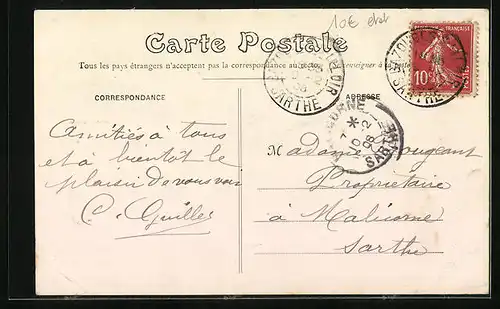 10€
Carte Postale
Tous les pays étrangers n'acceptent pas la correspondance au recto
renseigner à la poste
CORRESPONDANCE
ADRESSE
SARTHE
10
SARTHE
Amitiés à tous
et à bientôt le
plaisir de vous voir
C. Guilles
Madame
Propriétaire
à Malicorne
Sarthe